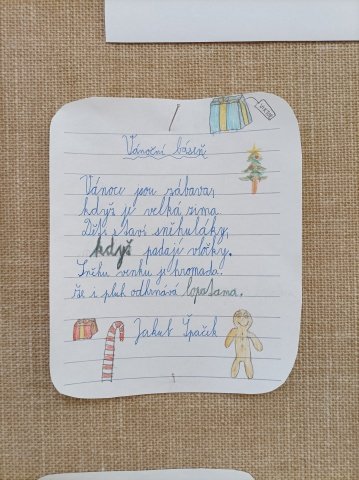 Vánoční báseň
Vánoce jsou zábava,
když je velká zima.
Děti staví sněhuláky,
když padají vločky.
Sněhu venku je hromada.
že i pluh odhrnává lopatama.
Jakub Špaček